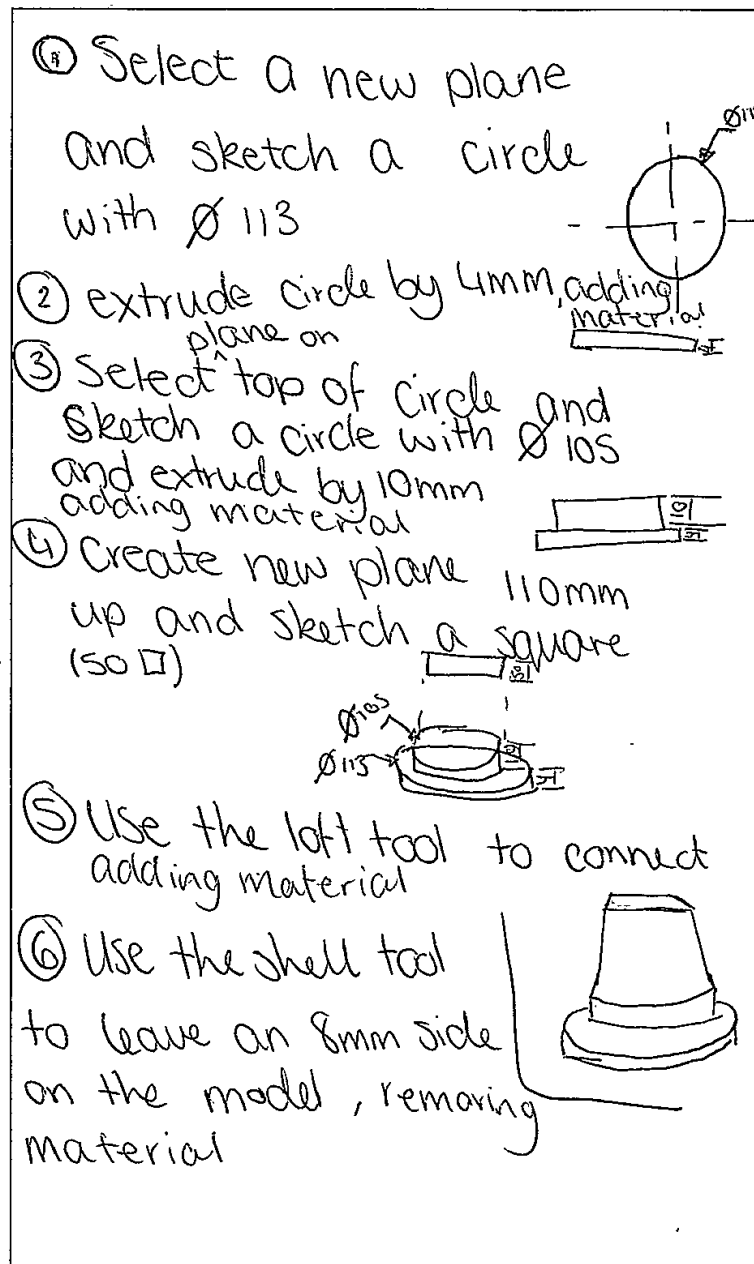 ① Select a new plane
and sketch a circle
with Ø 113
② extrude circle by 4mm, adding
material
③ Select ^ plane on top of circle and
sketch a circle with Ø 105
and extrude by 10mm
adding material
10
④ Create new plane 110mm
up and sketch a square
(50 □)
50
Ø105
Ø113
10
⑤ Use the loft tool to connect
adding material
⑥ Use the shell tool
to leave an 8mm side
on the model, removing
material